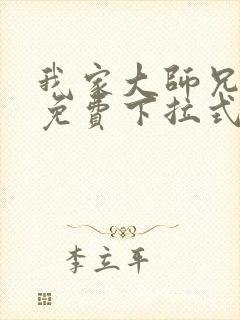 我家大師兄
免費下拉式
李立平